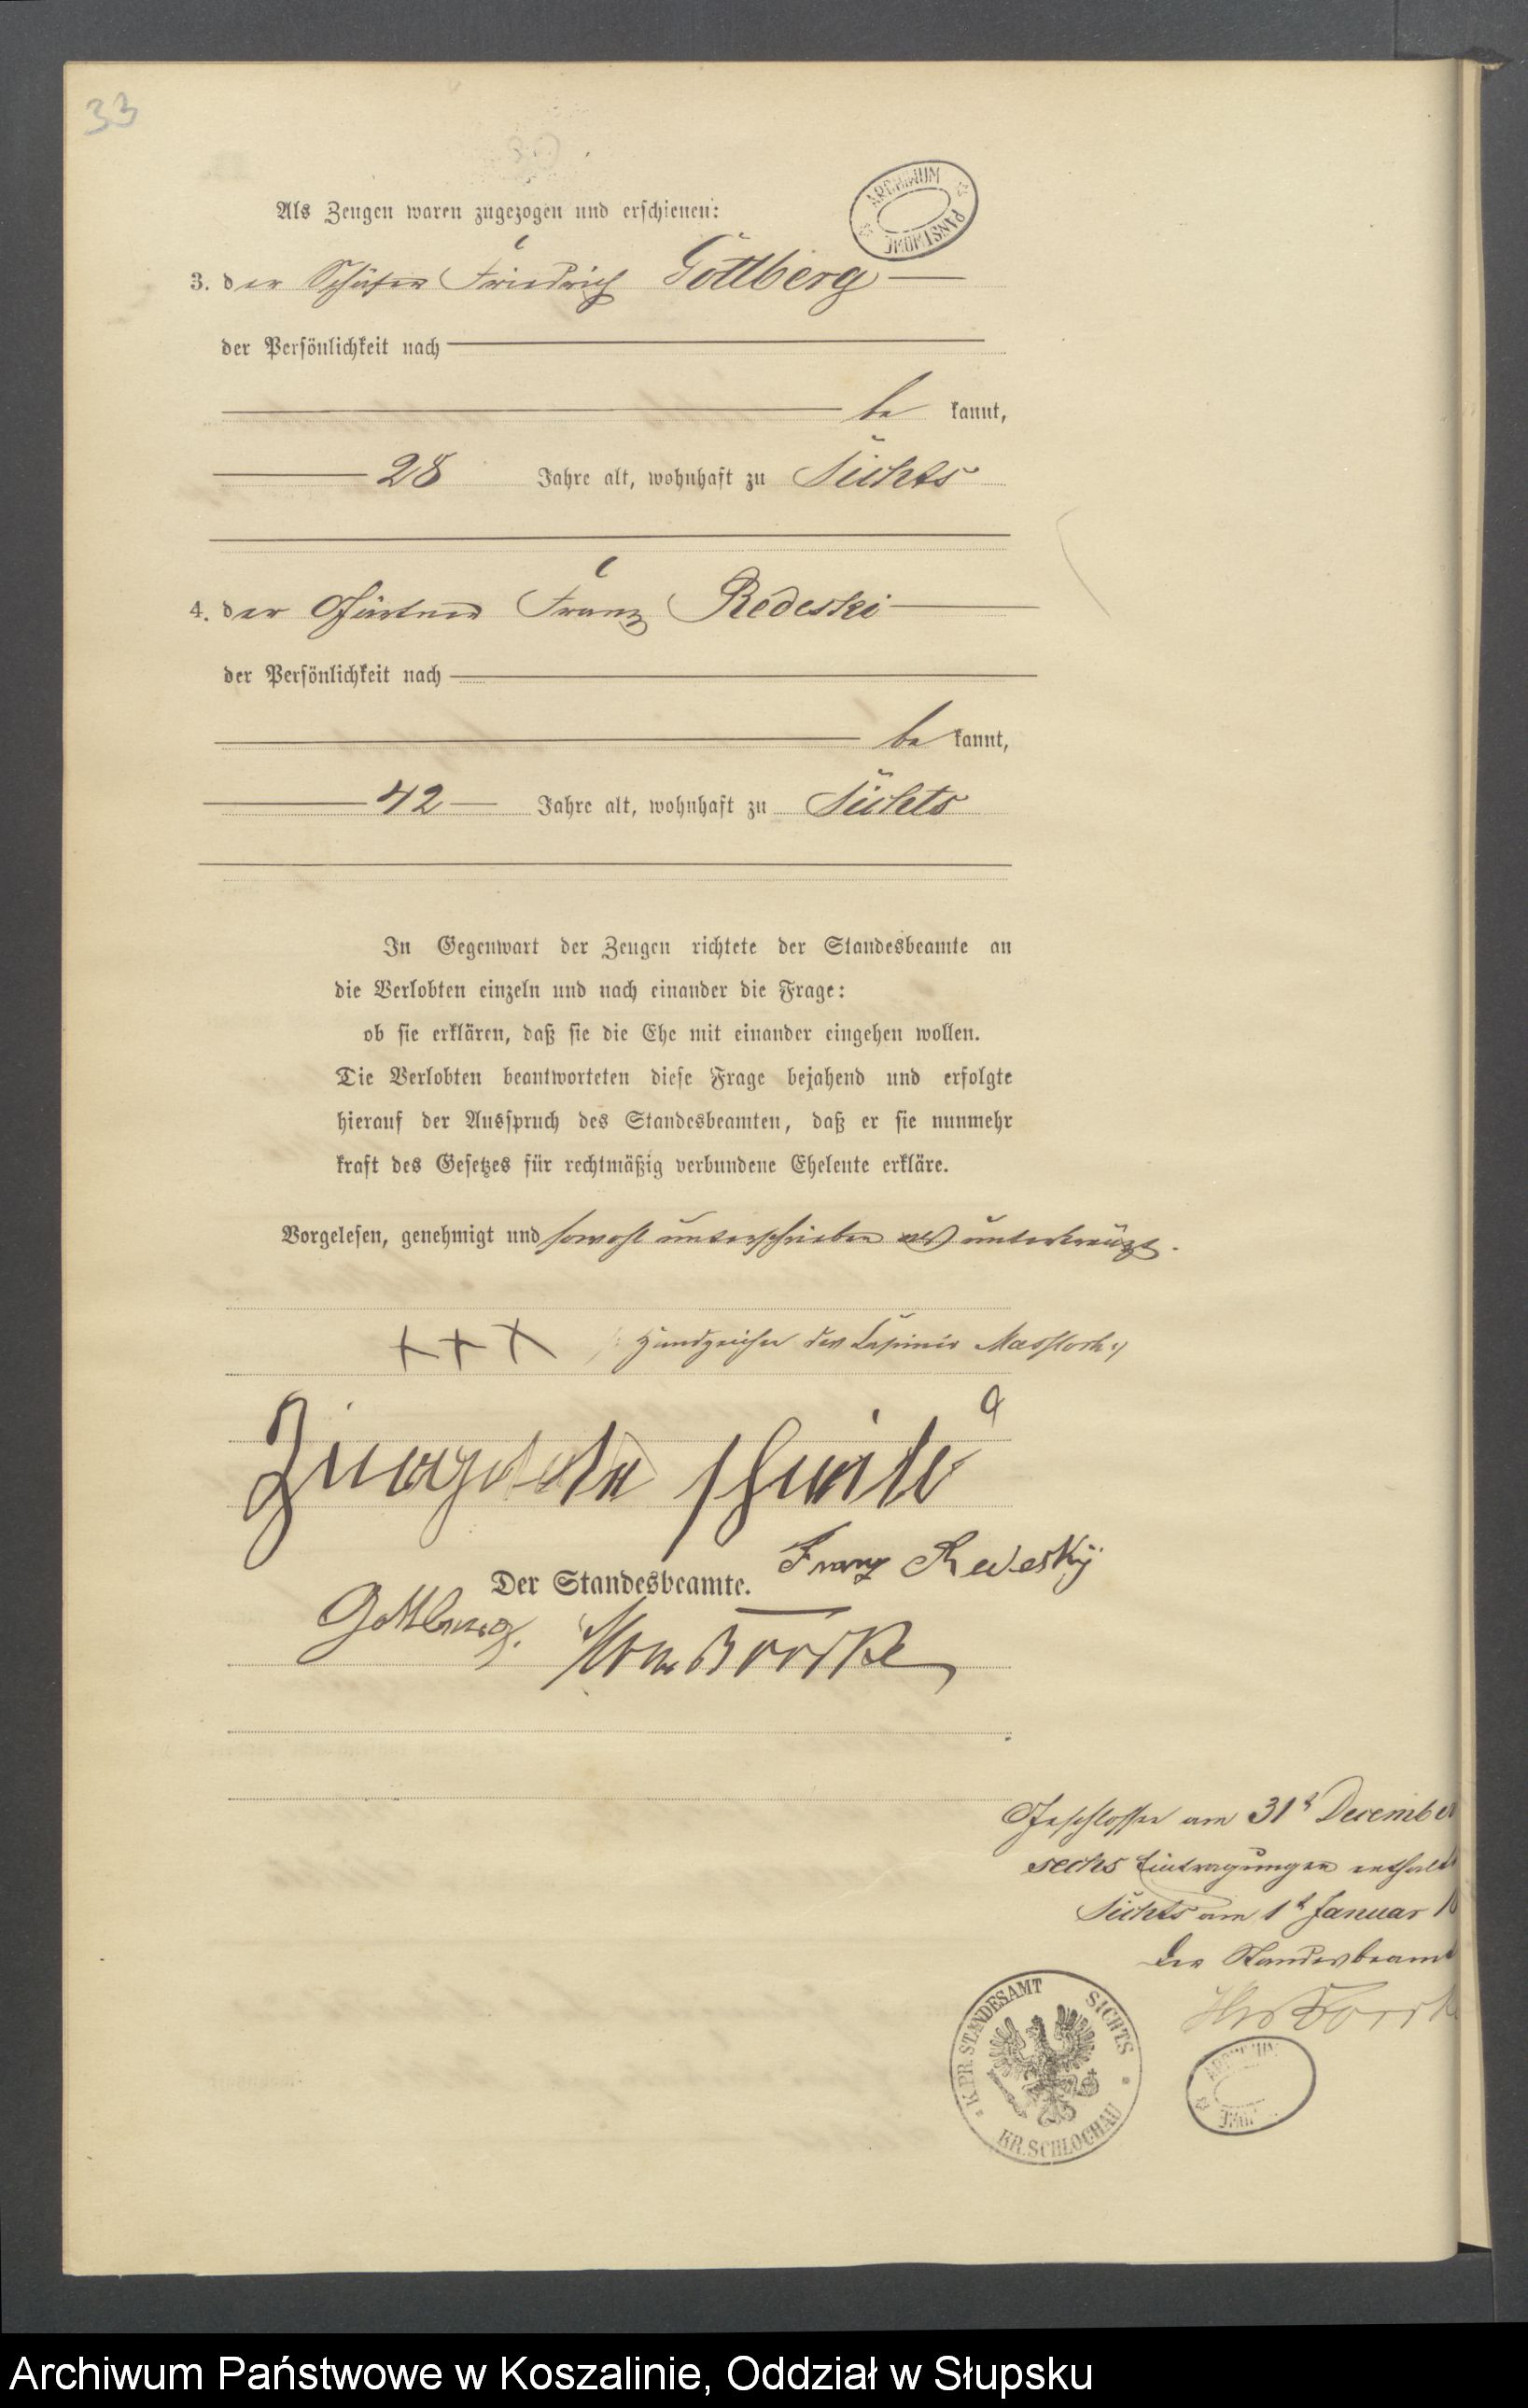 33
ARCHIWUM PAŃSTWOWE
Als Zeugen waren zugezogen und erschienen:
3. der Schäfer Friedrich Gottberg
der Persönlichkeit nach
be kannt,
28 Jahre alt, wohnhaft zu Sichts
4. der Gärtner Franz Redeski
der Persönlichkeit nach
be kannt,
42 Jahre alt, wohnhaft zu Sichts
In Gegenwart der Zeugen richtete der Standesbeamte an
die Verlobten einzeln und nach einander die Frage:
ob sie erklären, daß sie die Ehe mit einander eingehen wollen.
Die Verlobten beantworteten diese Frage bejahend und erfolgte
hierauf der Ausspruch des Standesbeamten, daß er sie nunmehr
kraft des Gesetzes für rechtmäßig verbundene Eheleute erkläre.
Vorgelesen, genehmigt und sowohl unterschrieben als unterkreuzt.
+++ Handzeichen des
Franz Redesky
Der Standesbeamte.
Gottberg.
Geschlossen am 31t December
sechs Eintragungen enthalt
Sichts am 1t Januar 1
Der Standesbeamt
K. PR. STANDESAMT SICHTS
KR. SCHLOCHAU
Archiwum Państwowe w Koszalinie, Oddział w Słupsku